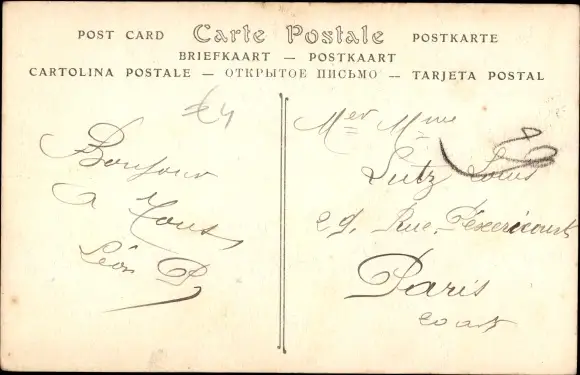 POST CARD Carte Postale POSTKARTE
BRIEFKAART — POSTKAART
CARTOLINA POSTALE — ОТКРЫТОЕ ПИСЬМО — TARJETA POSTAL
€4
Bonjour
a Tous
Léon P
Mer Mme
Lutz Louis
29. Rue. Pixerécourt
Paris
20 art